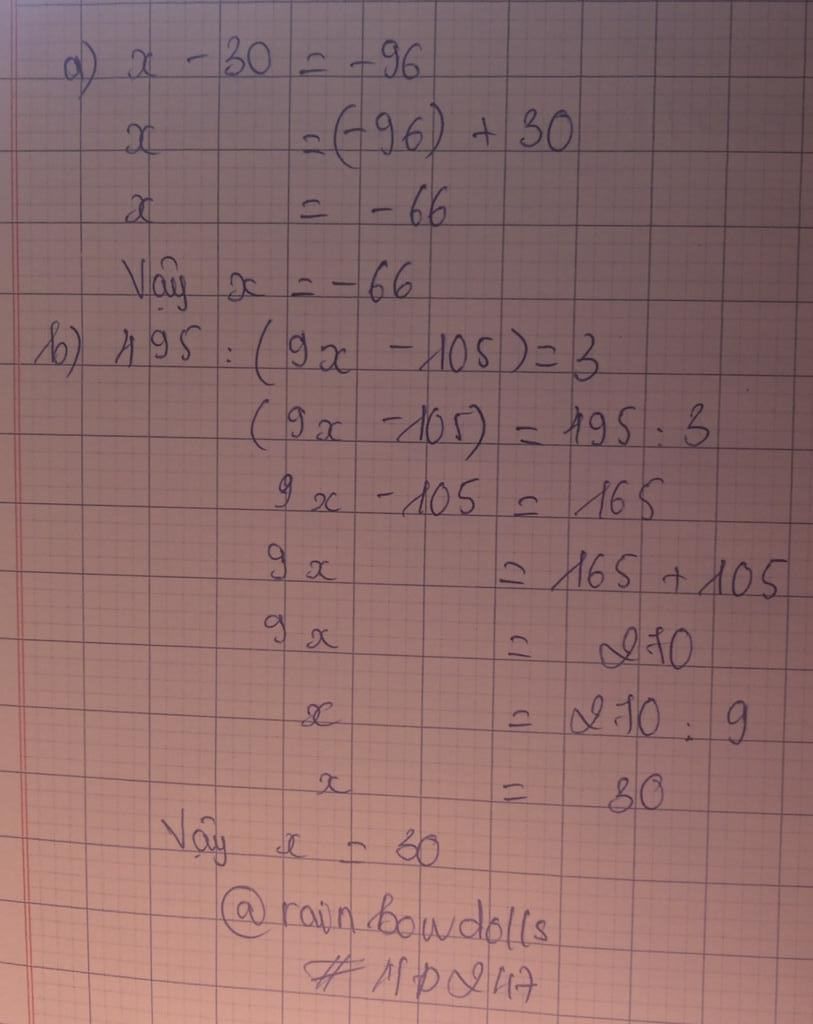 a) x - 30 = -96
x = (-96) + 30
x = -66
Vậy x = -66
b) 495 : (9x - 105) = 3
(9x - 105) = 495 : 3
9x - 105 = 165
9x = 165 + 105
9x = 270
x = 270 : 9
x = 30
Vậy x = 30
@rainbowdolls